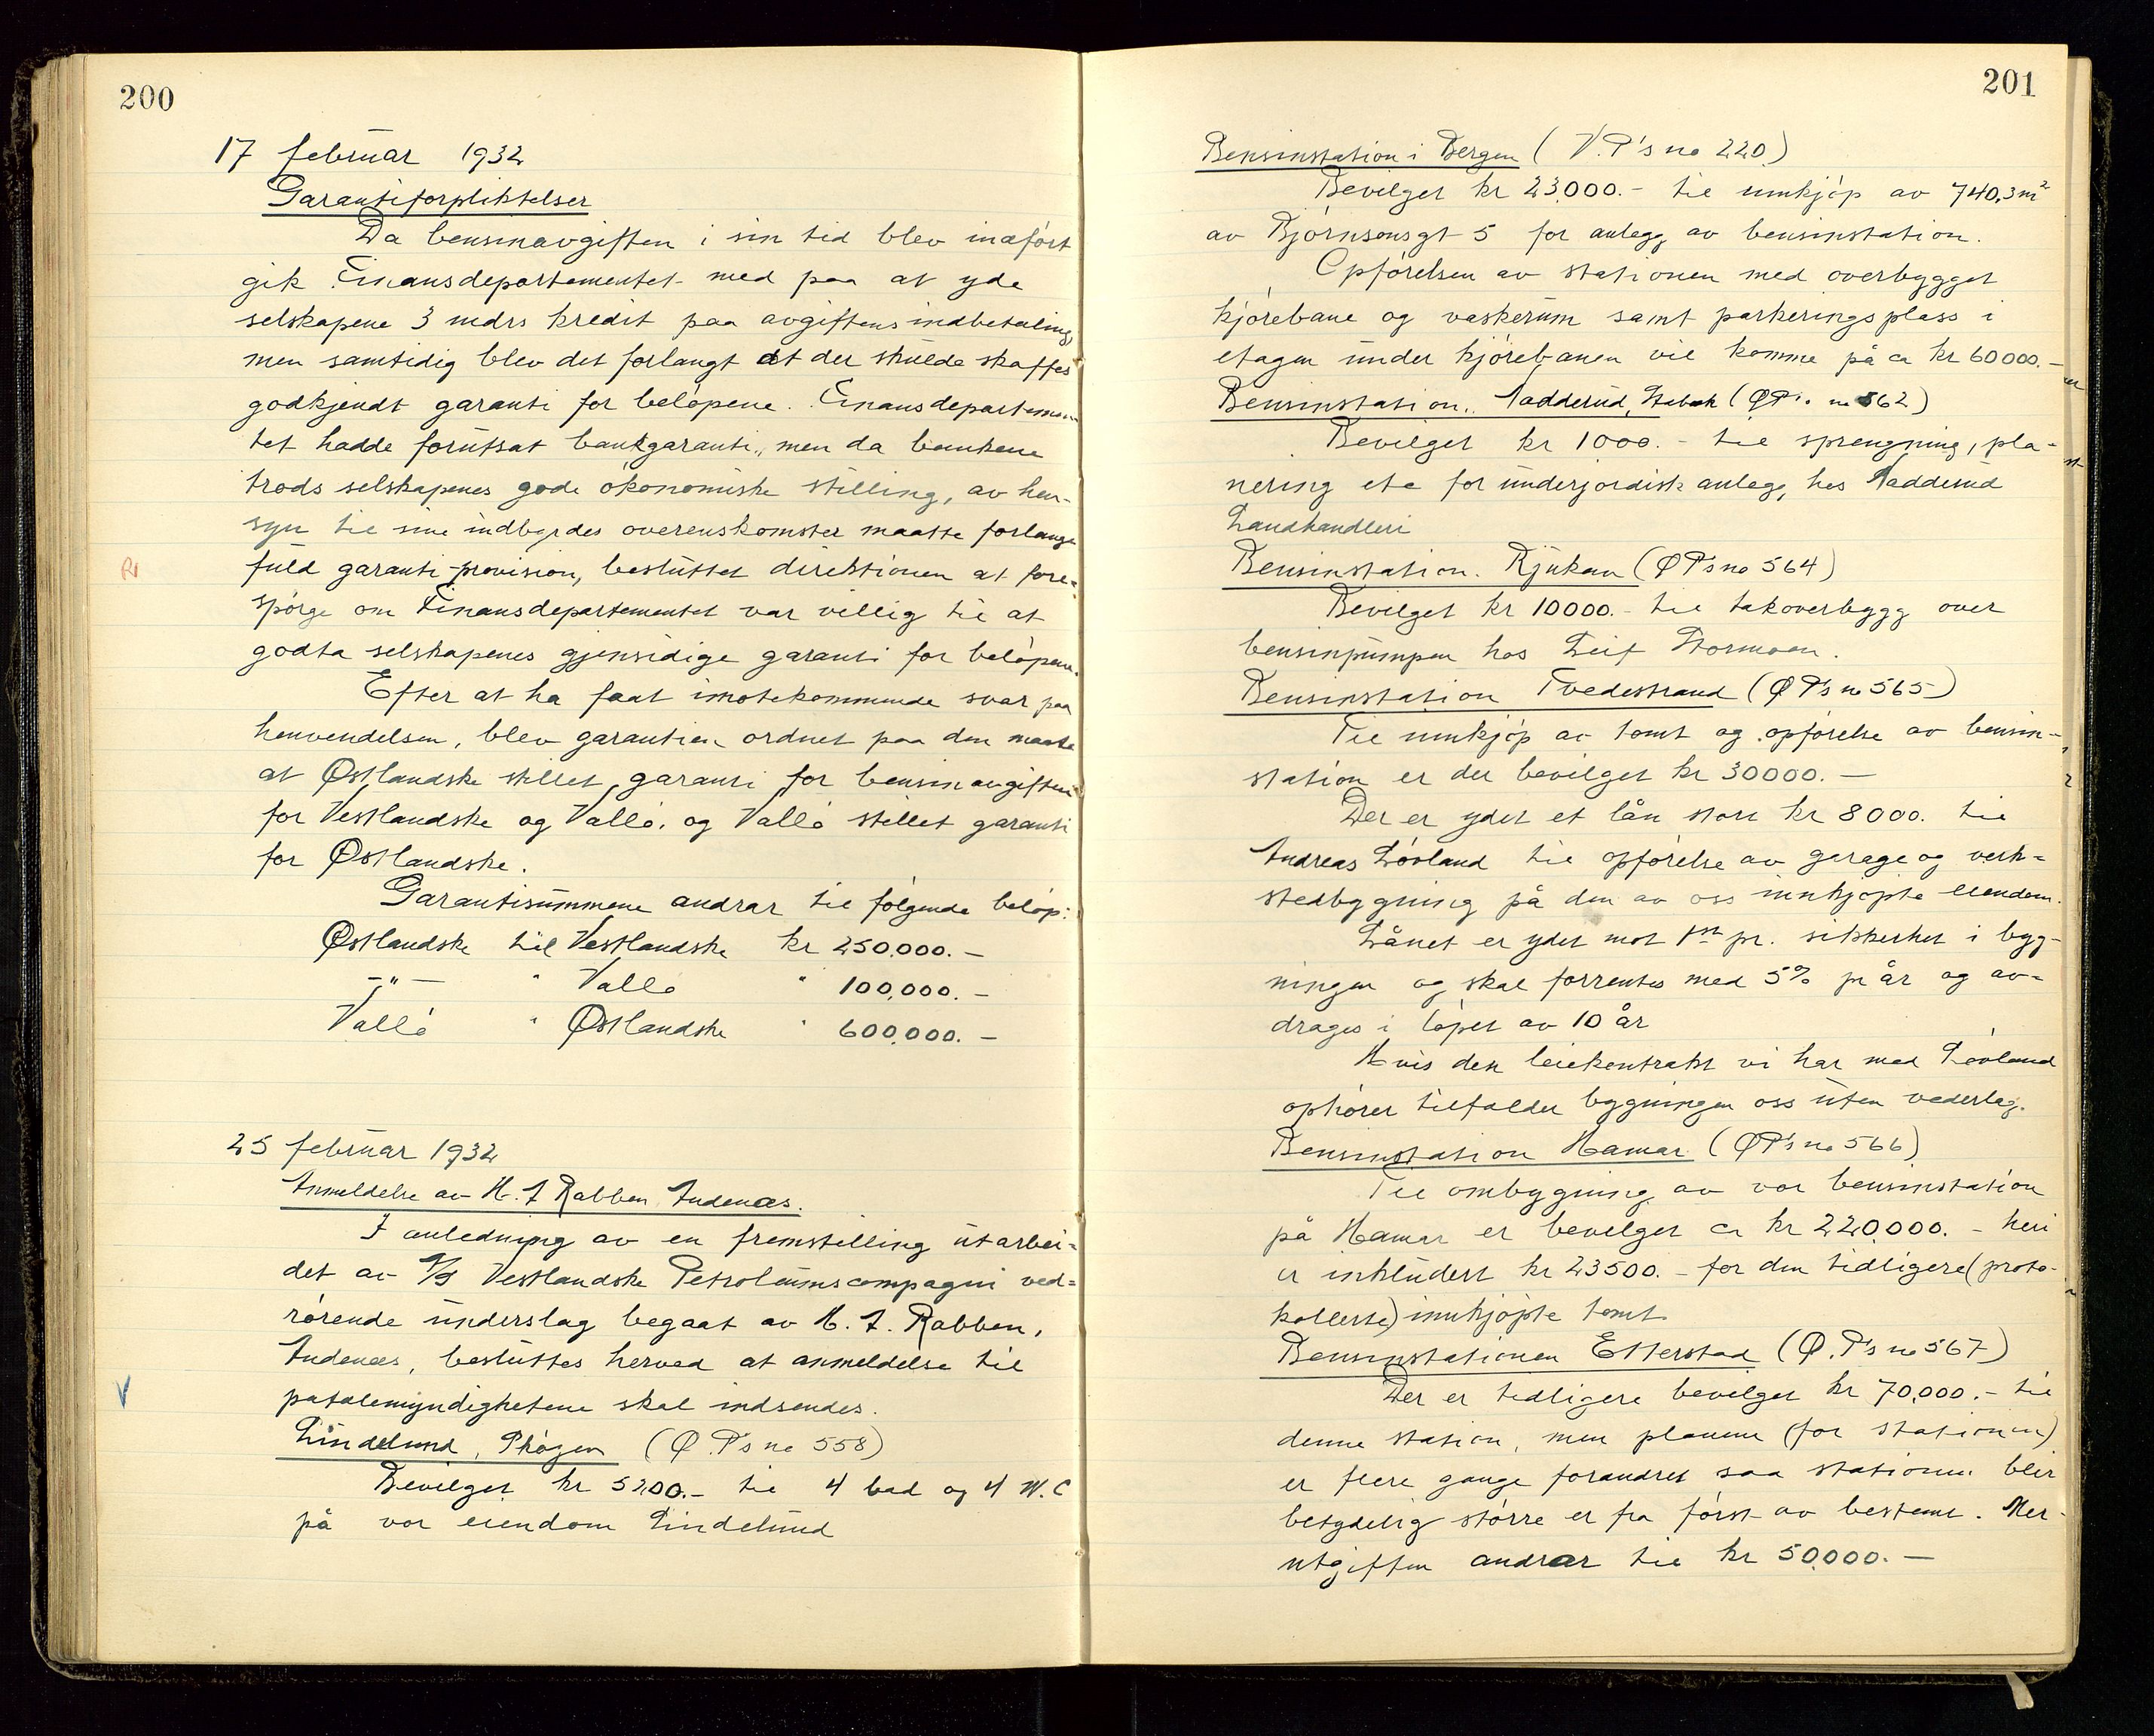 200
17 februar 1932
Garantiforpliktelser
Da bensinavgiften i sin tid blev indført
gik Finansdepartementet med paa at yde
selskapene 3 mdrs kredit paa avgiftens indbetaling,
men samtidig blev det forlangt at der skulde skaffes
godkjendt garanti for beløpene. Finansdepartemen-
tet hadde forutsat bankgaranti, men da bankene
trods selskapenes gode økonomiske stilling, av hen-
syn til sine indbyrdes overenskomster maatte forlange
fuld garanti-provision, besluttet direktionen at fore-
spørge om Finansdepartementet var villig til at
godta selskapenes gjensidige garanti for beløpene.
Efter at ha faat imøtekommende svar paa
henvendelsen, blev garantien ordnet paa den maate
at Østlandske stillet garanti for bensinavgiften
for Vestlandske og Vallø, og Vallø stillet garanti
for Østlandske.
Garantisummene andrar til følgende beløp:
Østlandske til Vestlandske kr 250.000.-
-"- " Vallø " 100,000.-
Vallø " Østlandske " 600,000.-
25 februar 1932
Anmeldelse av H. J Rabben Andenæs.
I anledning av en fremstilling utarbei-
det av A/S Vestlandske Petroleumscompagni ved-
rørende underslag begaat av H. J. Rabben,
Andenæs, besluttes herved at anmeldelse til
patalemyndighetene skal indsendes.
V
Lindelund, Skøyen (Ø.P's no 558)
Bevilget kr 5200.- til 4 bad og 4 W.C
på vor eiendom Lindelund
201
Bensinstation i Bergen (V.P's no 220)
Bevilget kr 23.000.- til innkjøp av 740,3 m²
av Bjørnsonsgt 5 for anlegg av bensinstation.
Opførelsen av stationen med overbygget
kjørebane og vaskerum samt parkeringsplass i
etagen under kjørebanen vil komme på ca kr 60000.-
Bensinstation. Nadderud, Stabæk (ØP's no 562)
Bevilget kr 1000.- til sprengning, pla-
nering etc for underjordisk anlegg, hos Nadderud
Landhandleri
Bensinstation. Rjukan (ØP's no 564)
Bevilget kr 10000.- til takoverbygg over
bensinpumpen hos Leif Stormoen.
Bensinstation Tvedestrand (ØP's no 565)
Til innkjøp av tomt og opførelse av bensin-
station er der bevilget kr 30000.-
Der er ydet et lån stort kr 8000. til
Andreas Løvland til opførelse av garage og verk-
stedbygning på den av oss innkjøpte eiendom.
Lånet er ydet mot 1ste pr. sikkerhet i byg-
ningen og skal forrentes med 5% pr år og av-
drages i løpet av 10 år
Hvis den leiekontrakt vi har med Løvland
ophører tilfalder bygningen oss uten vederlag.
Bensinstation Hamar (ØP's no 566)
Til ombygning av vor bensinstation
på Hamar er bevilget ca kr 220.000.- heri
er inkludert kr 23500.- for den tidligere (proto-
kollerte) innkjøpte tomt
Bensinstationen Etterstad (Ø.P's no 567)
Der er tidligere bevilget kr 70,000.- til
denne station, men planene (for stationen)
er flere gange forandret saa stationen blir
betydelig større er fra først av bestemt. Mer-
utgiften andrar til kr 50.000.-